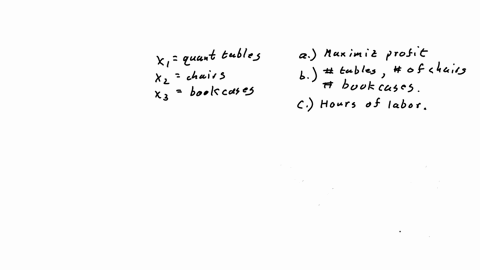 x₁ = quant tables
x₂ = chairs
x₃ = bookcases
a.) Maximiz profit
b.) # tables, # of chairs
# bookcases.
c.) Hours of labor.